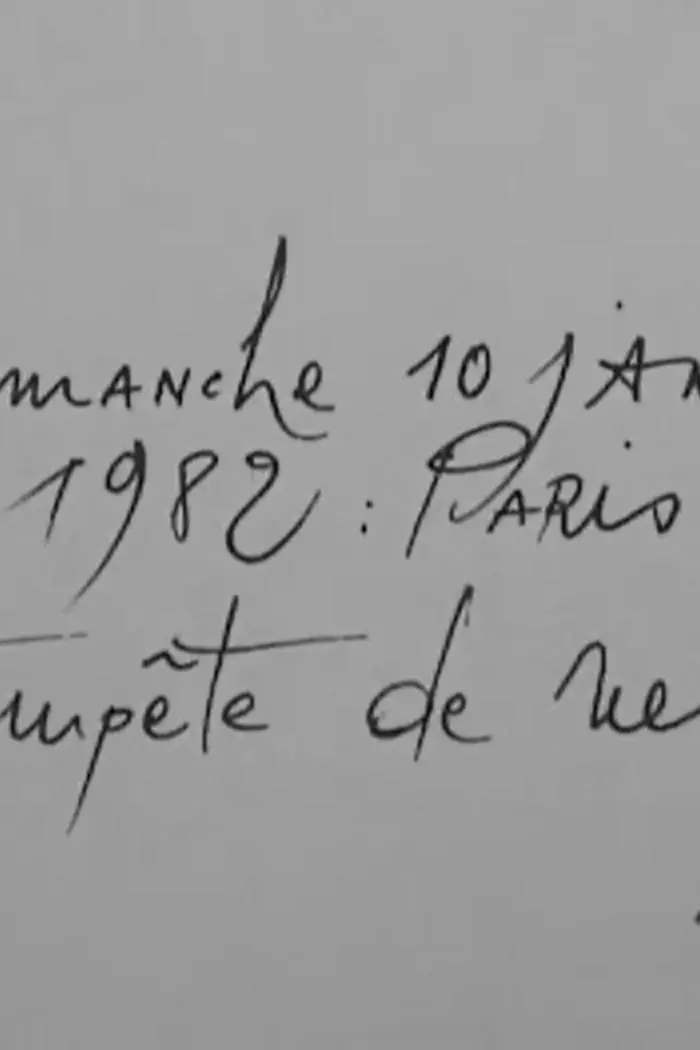 manche 10 jan
1982 : Paris
mpête de ne